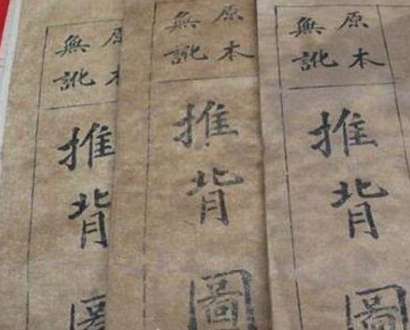 原本
無訛
推背圖
原本
無訛
推背圖
原本
無訛
推背圖